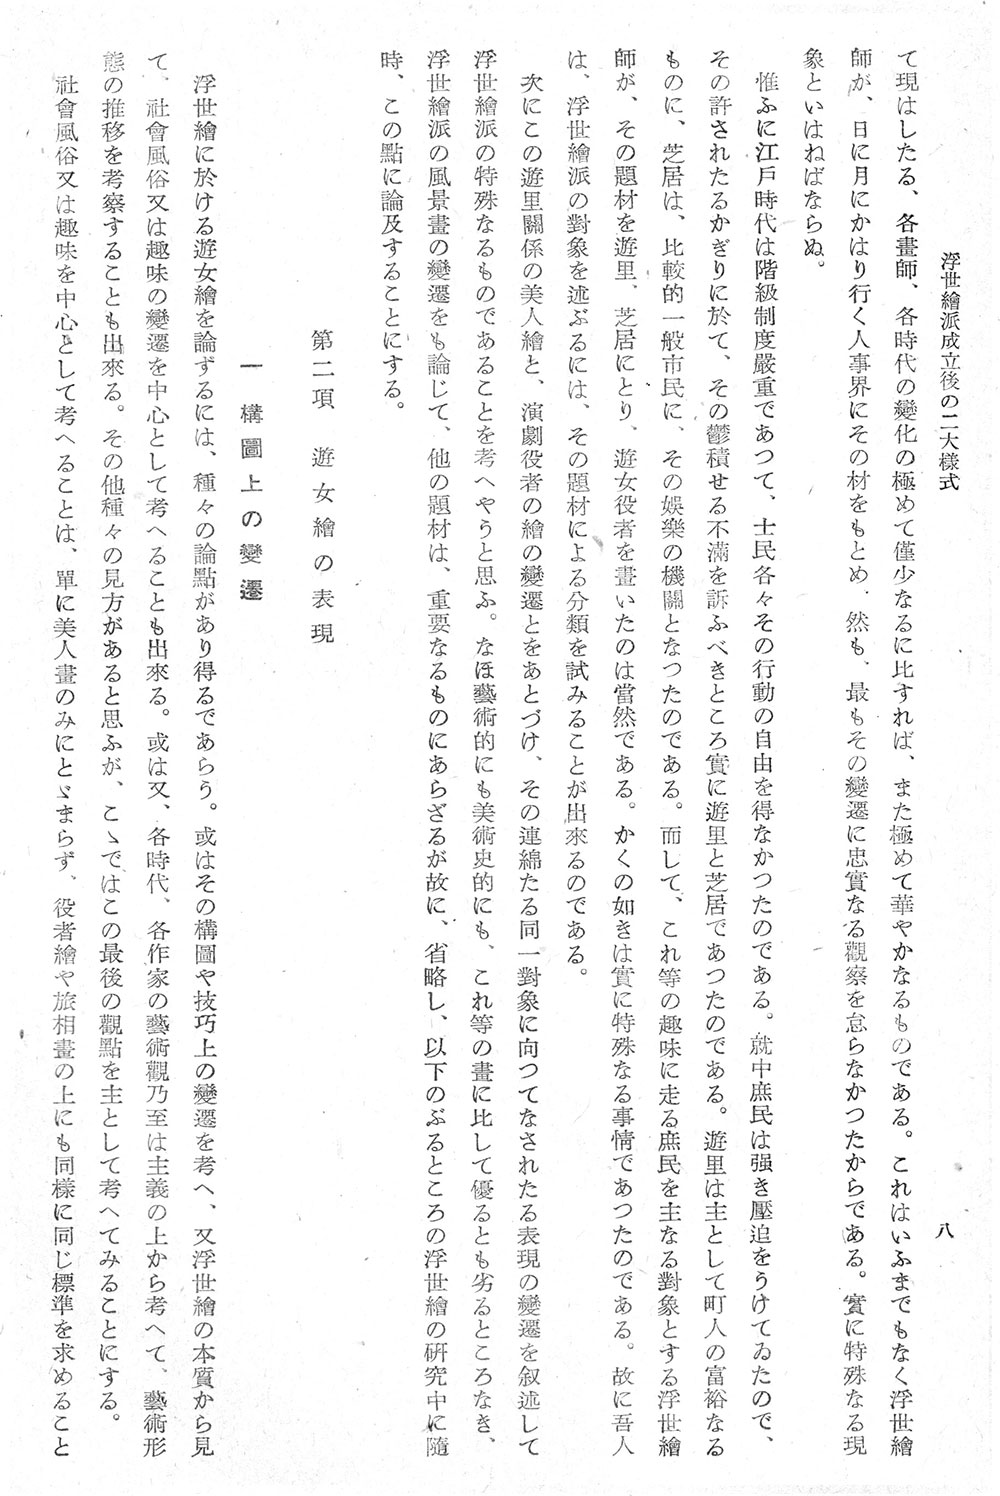 浮世繪派成立後の二大樣式
八
て現はしたる、各畫師、各時代の變化の極めて僅少なるに比すれば、また極めて華やかなるものである。これはいふまでもなく浮世繪
師が、日に月にかはり行く人事界にその材をもとめ、然も、最もその變遷に忠實なる觀察を怠らなかつたからである。實に特殊なる現
象といはねばならぬ。
惟ふに江戸時代は階級制度嚴重であつて、士民各々その行動の自由を得なかつたのである。就中庶民は强き壓迫をうけてゐたので、
その許されたるかぎりに於て、その鬱積せる不滿を訴ふべきところ實に遊里と芝居であつたのである。遊里は主として町人の富裕なる
ものに、芝居は、比較的一般市民に、その娛樂の機關となつたのである。而して、これ等の趣味に走る庶民を主なる對象とする浮世繪
師が、その題材を遊里、芝居にとり、遊女役者を畫いたのは當然である。かくの如きは實に特殊なる事情であつたのである。故に吾人
は、浮世繪派の對象を述ぶるには、その題材による分類を試みることが出來るのである。
次にこの遊里關係の美人繪と、演劇役者の繪の變遷とをあとづけ、その連綿たる同一對象に向つてなされたる表現の變遷を叙述して
浮世繪派の特殊なるものであることを考へやうと思ふ。なほ藝術的にも美術史的にも、これ等の畫に比して優るとも劣るところなき、
浮世繪派の風景畫の變遷をも論じて、他の題材は、重要なるものにあらざるが故に、省略し、以下のぶるところの浮世繪の硏究中に隨
時、この點に論及することにする。
第二項　遊女繪の表現
一　構圖上の變遷
浮世繪に於ける遊女繪を論ずるには、種々の論點があり得るであらう。或はその構圖や技巧上の變遷を考へ、又浮世繪の本質から見
て、社會風俗又は趣味の變遷を中心として考へることも出來る。或は又、各時代、各作家の藝術觀乃至は主義の上から考へて、藝術形
態の推移を考察することも出來る。その他種々の見方があると思ふが、こゝではこの最後の觀點を主として考へてみることにする。
社會風俗又は趣味を中心として考へることは、單に美人畫のみにとゞまらず、役者繪や旅相畫の上にも同樣に同じ標準を求めること